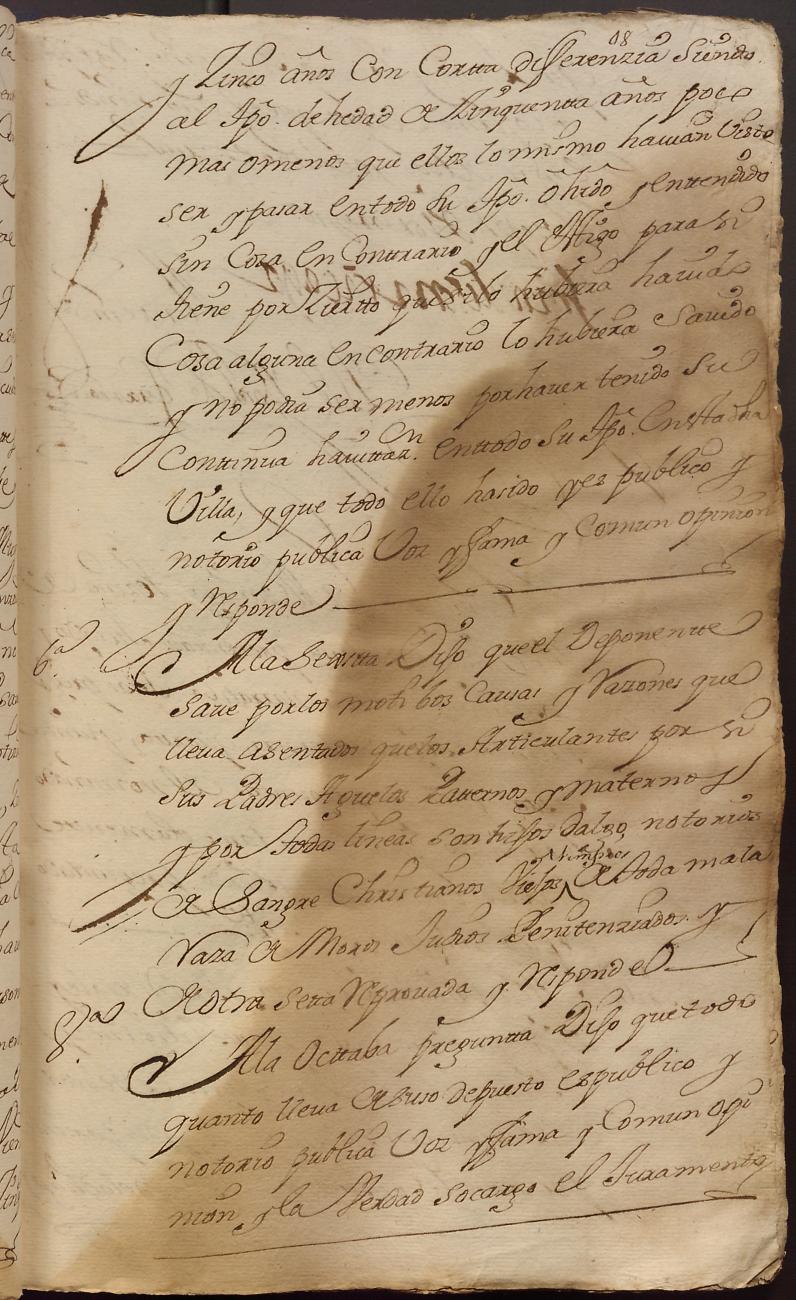 08
y Zinco años Con Cortta differenzia Siendo
al tpo. de hedad de Zinquentta años poco
mas omenos que ellos lo mismo havian Visto
ser y pasar entodo su tpo. ohido y entendido
sin Cosa en Conttrario y el ttigo para si
tiene por Ziertto que si lo hubiera havido
Cosa alguna en contrario lo hubiera Savido
y no podia ser menos por haver tenido Su
Conttinua havittazn. enttodo su tpo. en esta dha
Villa, y que todo ello hasido yes publico y
nottorio publica Voz y fama y Comun opinion
y Responde
6a. Ala Sexstta Dijo que el Deponentte
save por los motibos Causas y Razones que
lleva asentados que los Articulantes por si
Sus Padres Aguelos Paternos y maternos
y por todas lineas son hijos dalgo, notorios
de Sangre Christianos Viejos limpios de toda mala
Raza de Moros Judios Penitenziados y
de otra Setta Reprovada y Responde
8a. Ala Octtaba preguntta Dijo que todo
quanto lleva de suso depuesto es publico y
notorio publica Voz y fama y Comun opi
nion y la Verdad socargo el Juramento